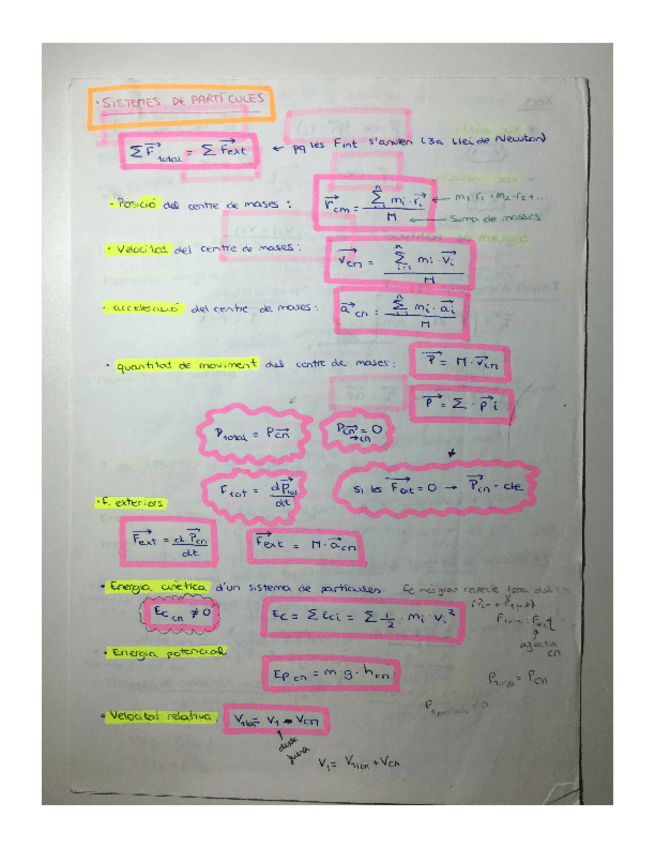 · SISTEMES DE PARTÍCULES
Σ F⃗ total = Σ F⃗ext ← pq les Fint s'anulen (3a Llei de Newton)
- Posició del centre de mases: r⃗cm = Σ mi · r⃗i / M ← m1·r1 + m2·r2 + ...
← Suma de masses
· Velocitat del centre de mases: v⃗cm = Σ mi · v⃗i / M
· acceleració del centre de mases: a⃗cm = Σ mi · a⃗i / M
· quantitat de moviment del centre de mases: P⃗ = M · v⃗cm
P⃗ = Σ · p⃗i
Ptotal = Pcm
Pcm = 0
→cm
Ftot = dp⃗tot / dt
si les F⃗ext = 0 → P⃗cm = cte
· F. exteriors
F⃗ext = d P⃗cm / dt
F⃗ext = M · a⃗cm
· Energia cinètica d'un sistema de partícules
Ec cm ≠ 0
Ec = Σ Eci = Σ 1/2 · mi · vi²
afecta
cm
· Energia potencial
Ep cm = m · g · hcm
Ptotal = Pcm
· Velocitat relativa: V1 = V1 - Vcm
↑
desde
fuera
V1 = V1/cm + Vcm